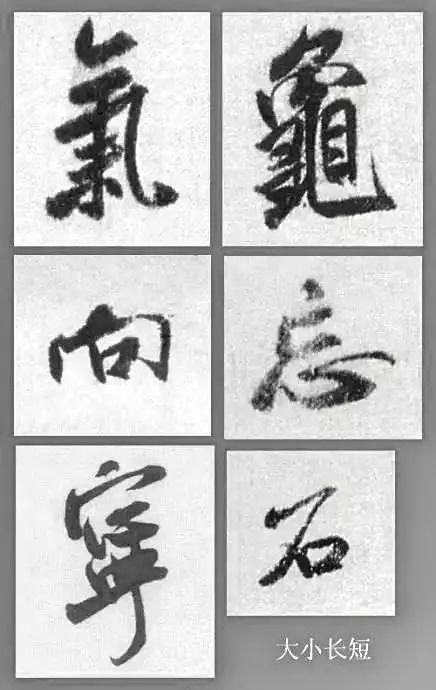 氣 龜
向 忘
寧 石
大小长短